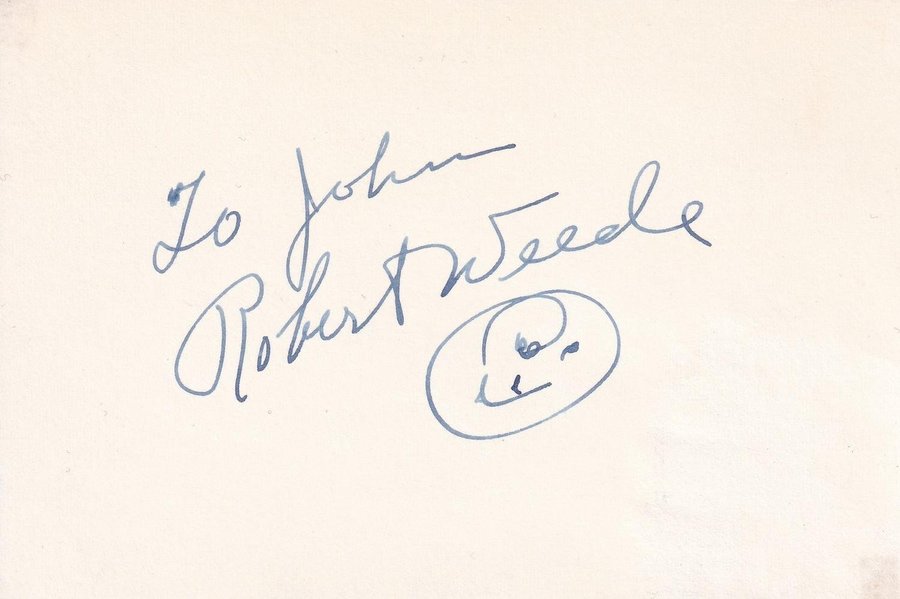 To John
Robert Weede